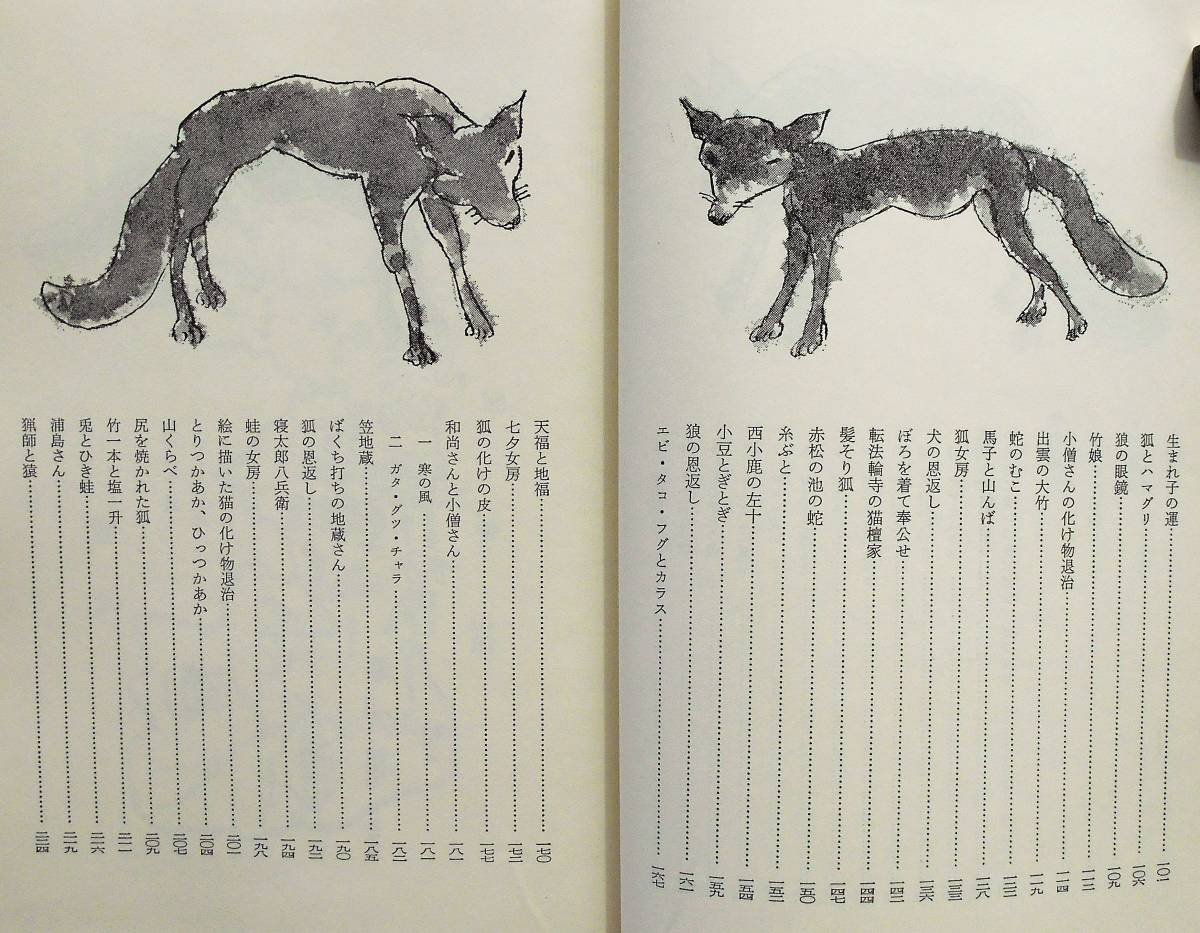 生まれ子の運……一〇一
狐とハマグリ……一〇六
狼の眼鏡……一〇九
竹娘……一一二
小僧さんの化け物退治……一一四
出雲の大竹……一一九
蛇のむこ……一二三
馬子と山んば……一二八
狐女房……一三三
犬の恩返し……一三六
ぼろを着て奉公せ……一四二
転法輪寺の猫檀家……一四四
髪そり狐……一四七
赤松の池の蛇……一五〇
糸ぶと……一五二
西小鹿の左十……一五四
小豆とぎとぎ……一五九
狼の恩返し……一六一
エビ・タコ・フグとカラス……一六七
天福と地福……一七〇
七夕女房……一七三
狐の化けの皮……一七七
和尚さんと小僧さん……一八一
一 寒の風……一八一
二 ガタ・グツ・チャラ……一八二
笠地蔵……一八五
ばくち打ちの地蔵さん……一九〇
狐の恩返し……一九二
寝太郎八兵衛……一九四
蛙の女房……一九八
絵に描いた猫の化け物退治……二〇一
とりつかあか、ひっつかあか……二〇四
山くらべ……二〇七
尻を焼かれた狐……二〇九
竹一本と塩一升……二一一
兎とひき蛙……二一六
浦島さん……二一九
猟師と猿……二二四